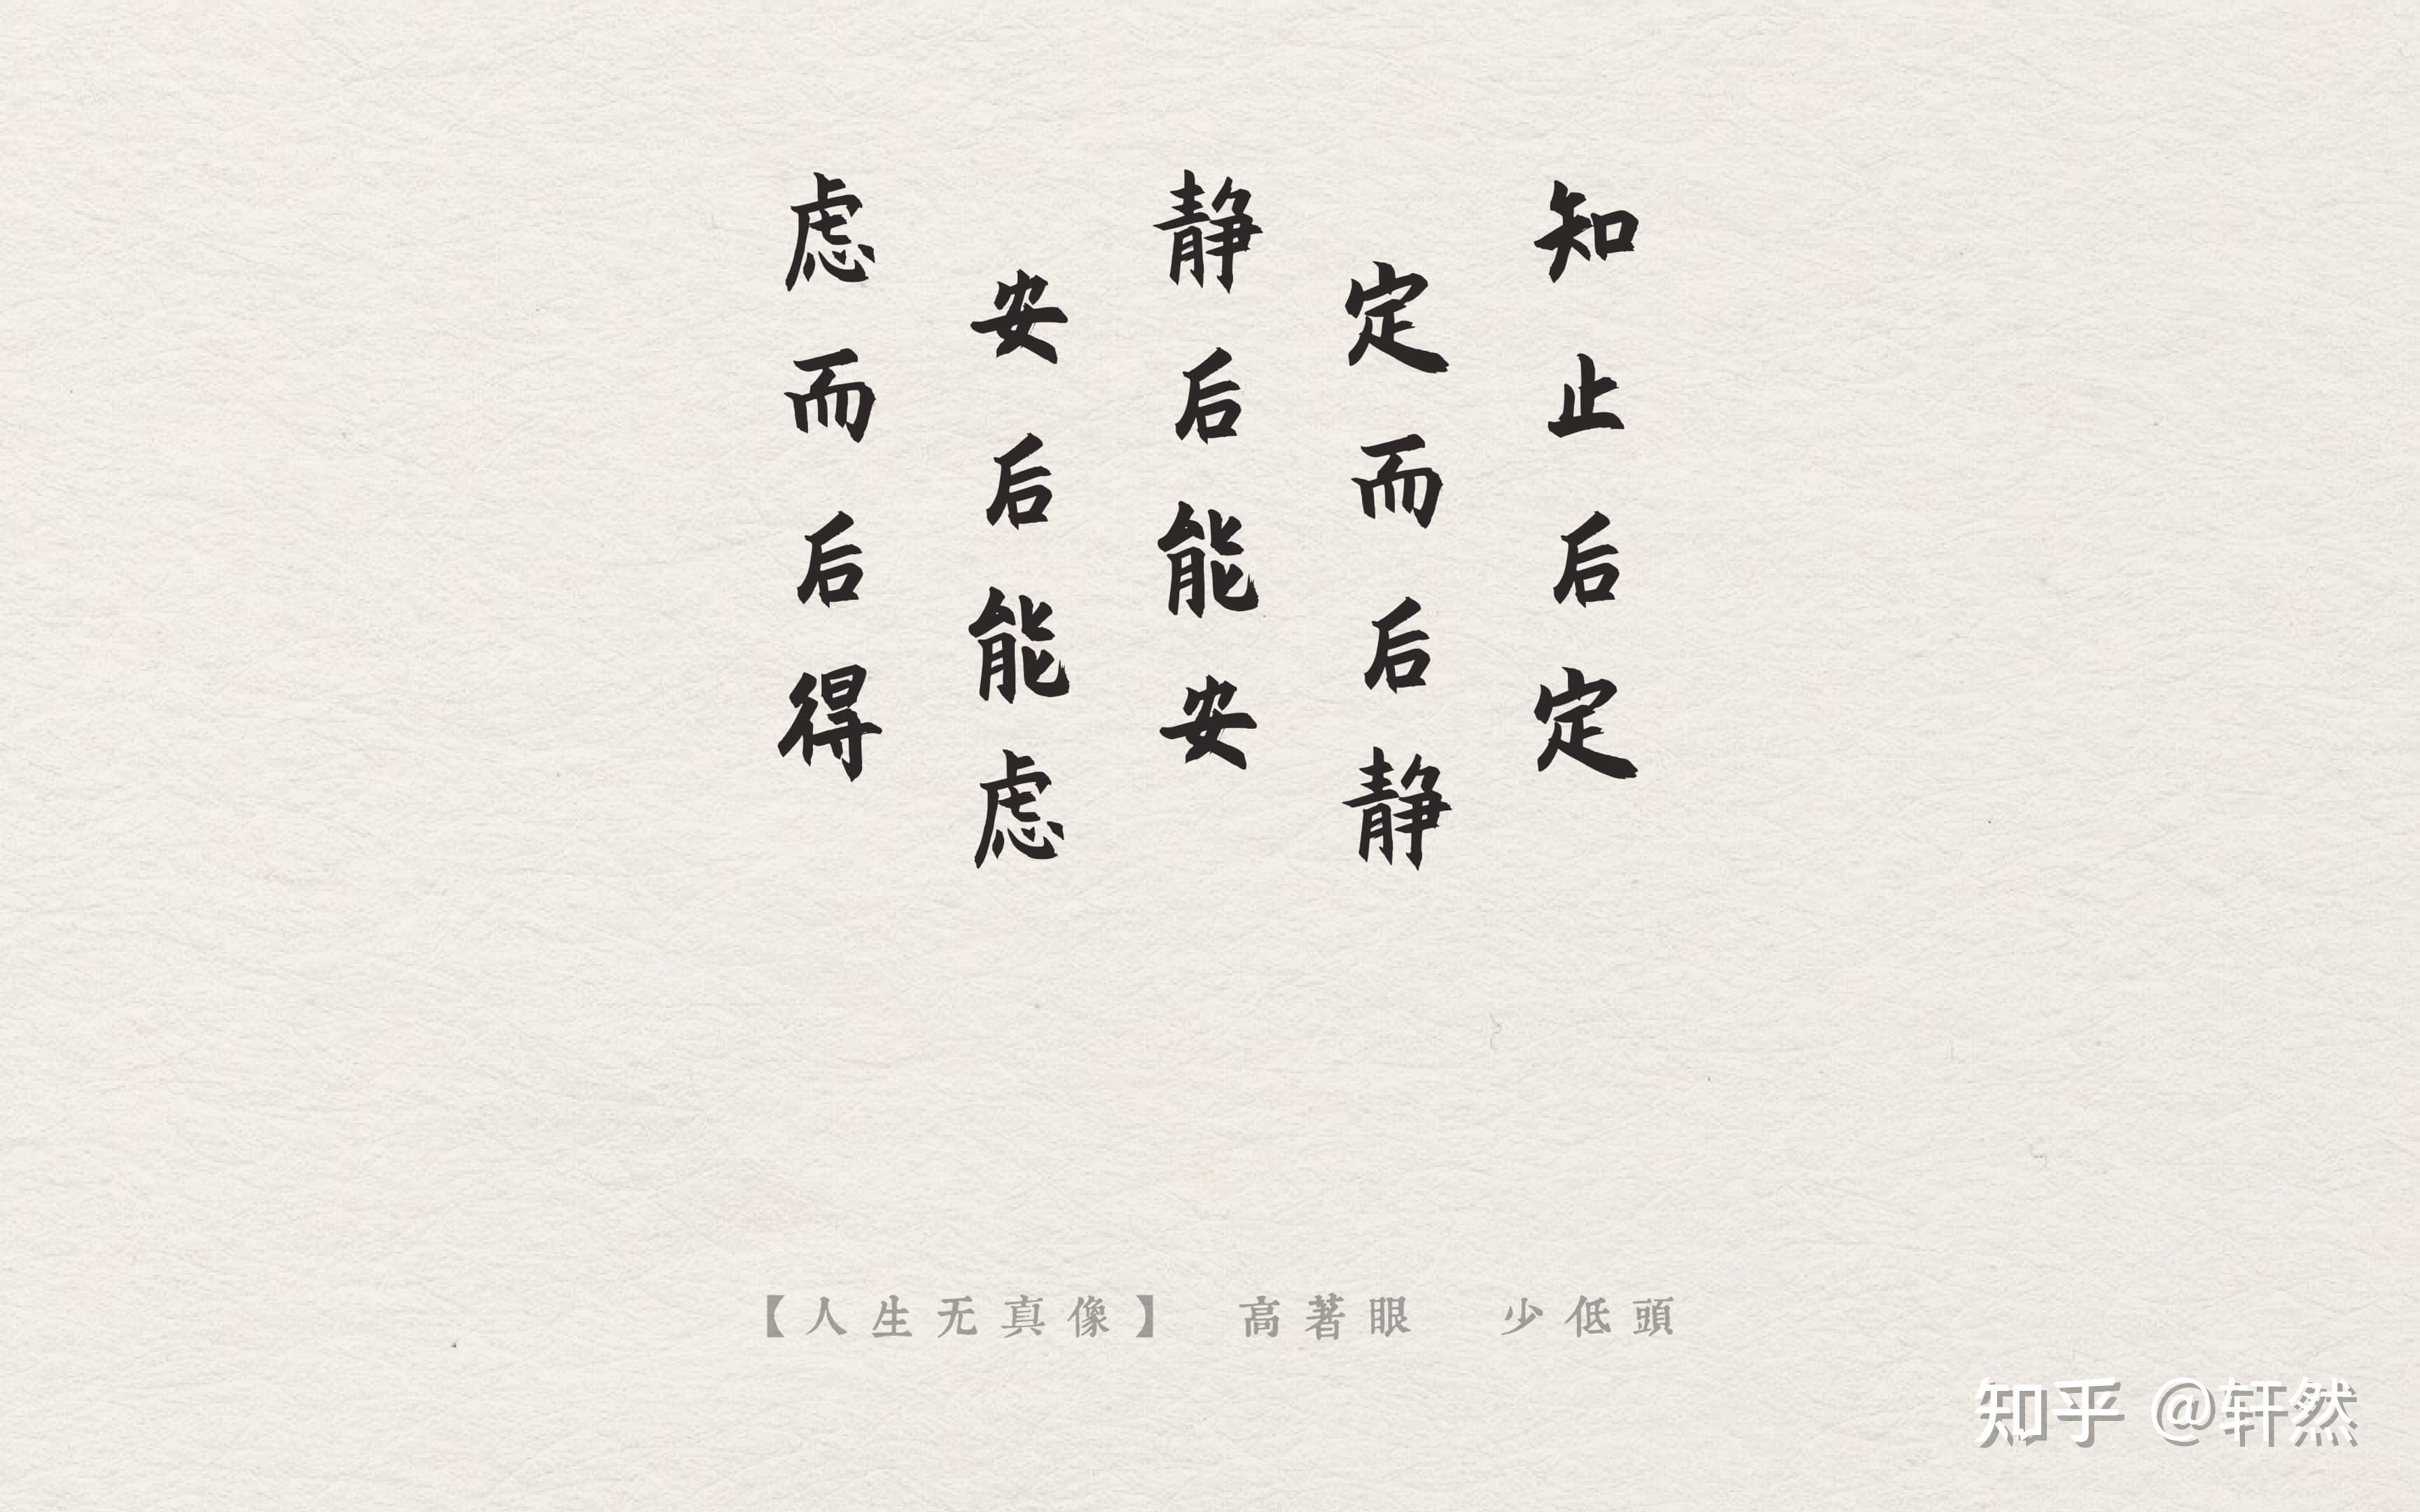 知止后定
定而后静
静后能安
安后能虑
虑而后得
【人生无真像】 高著眼 少低頭
知乎 @轩然